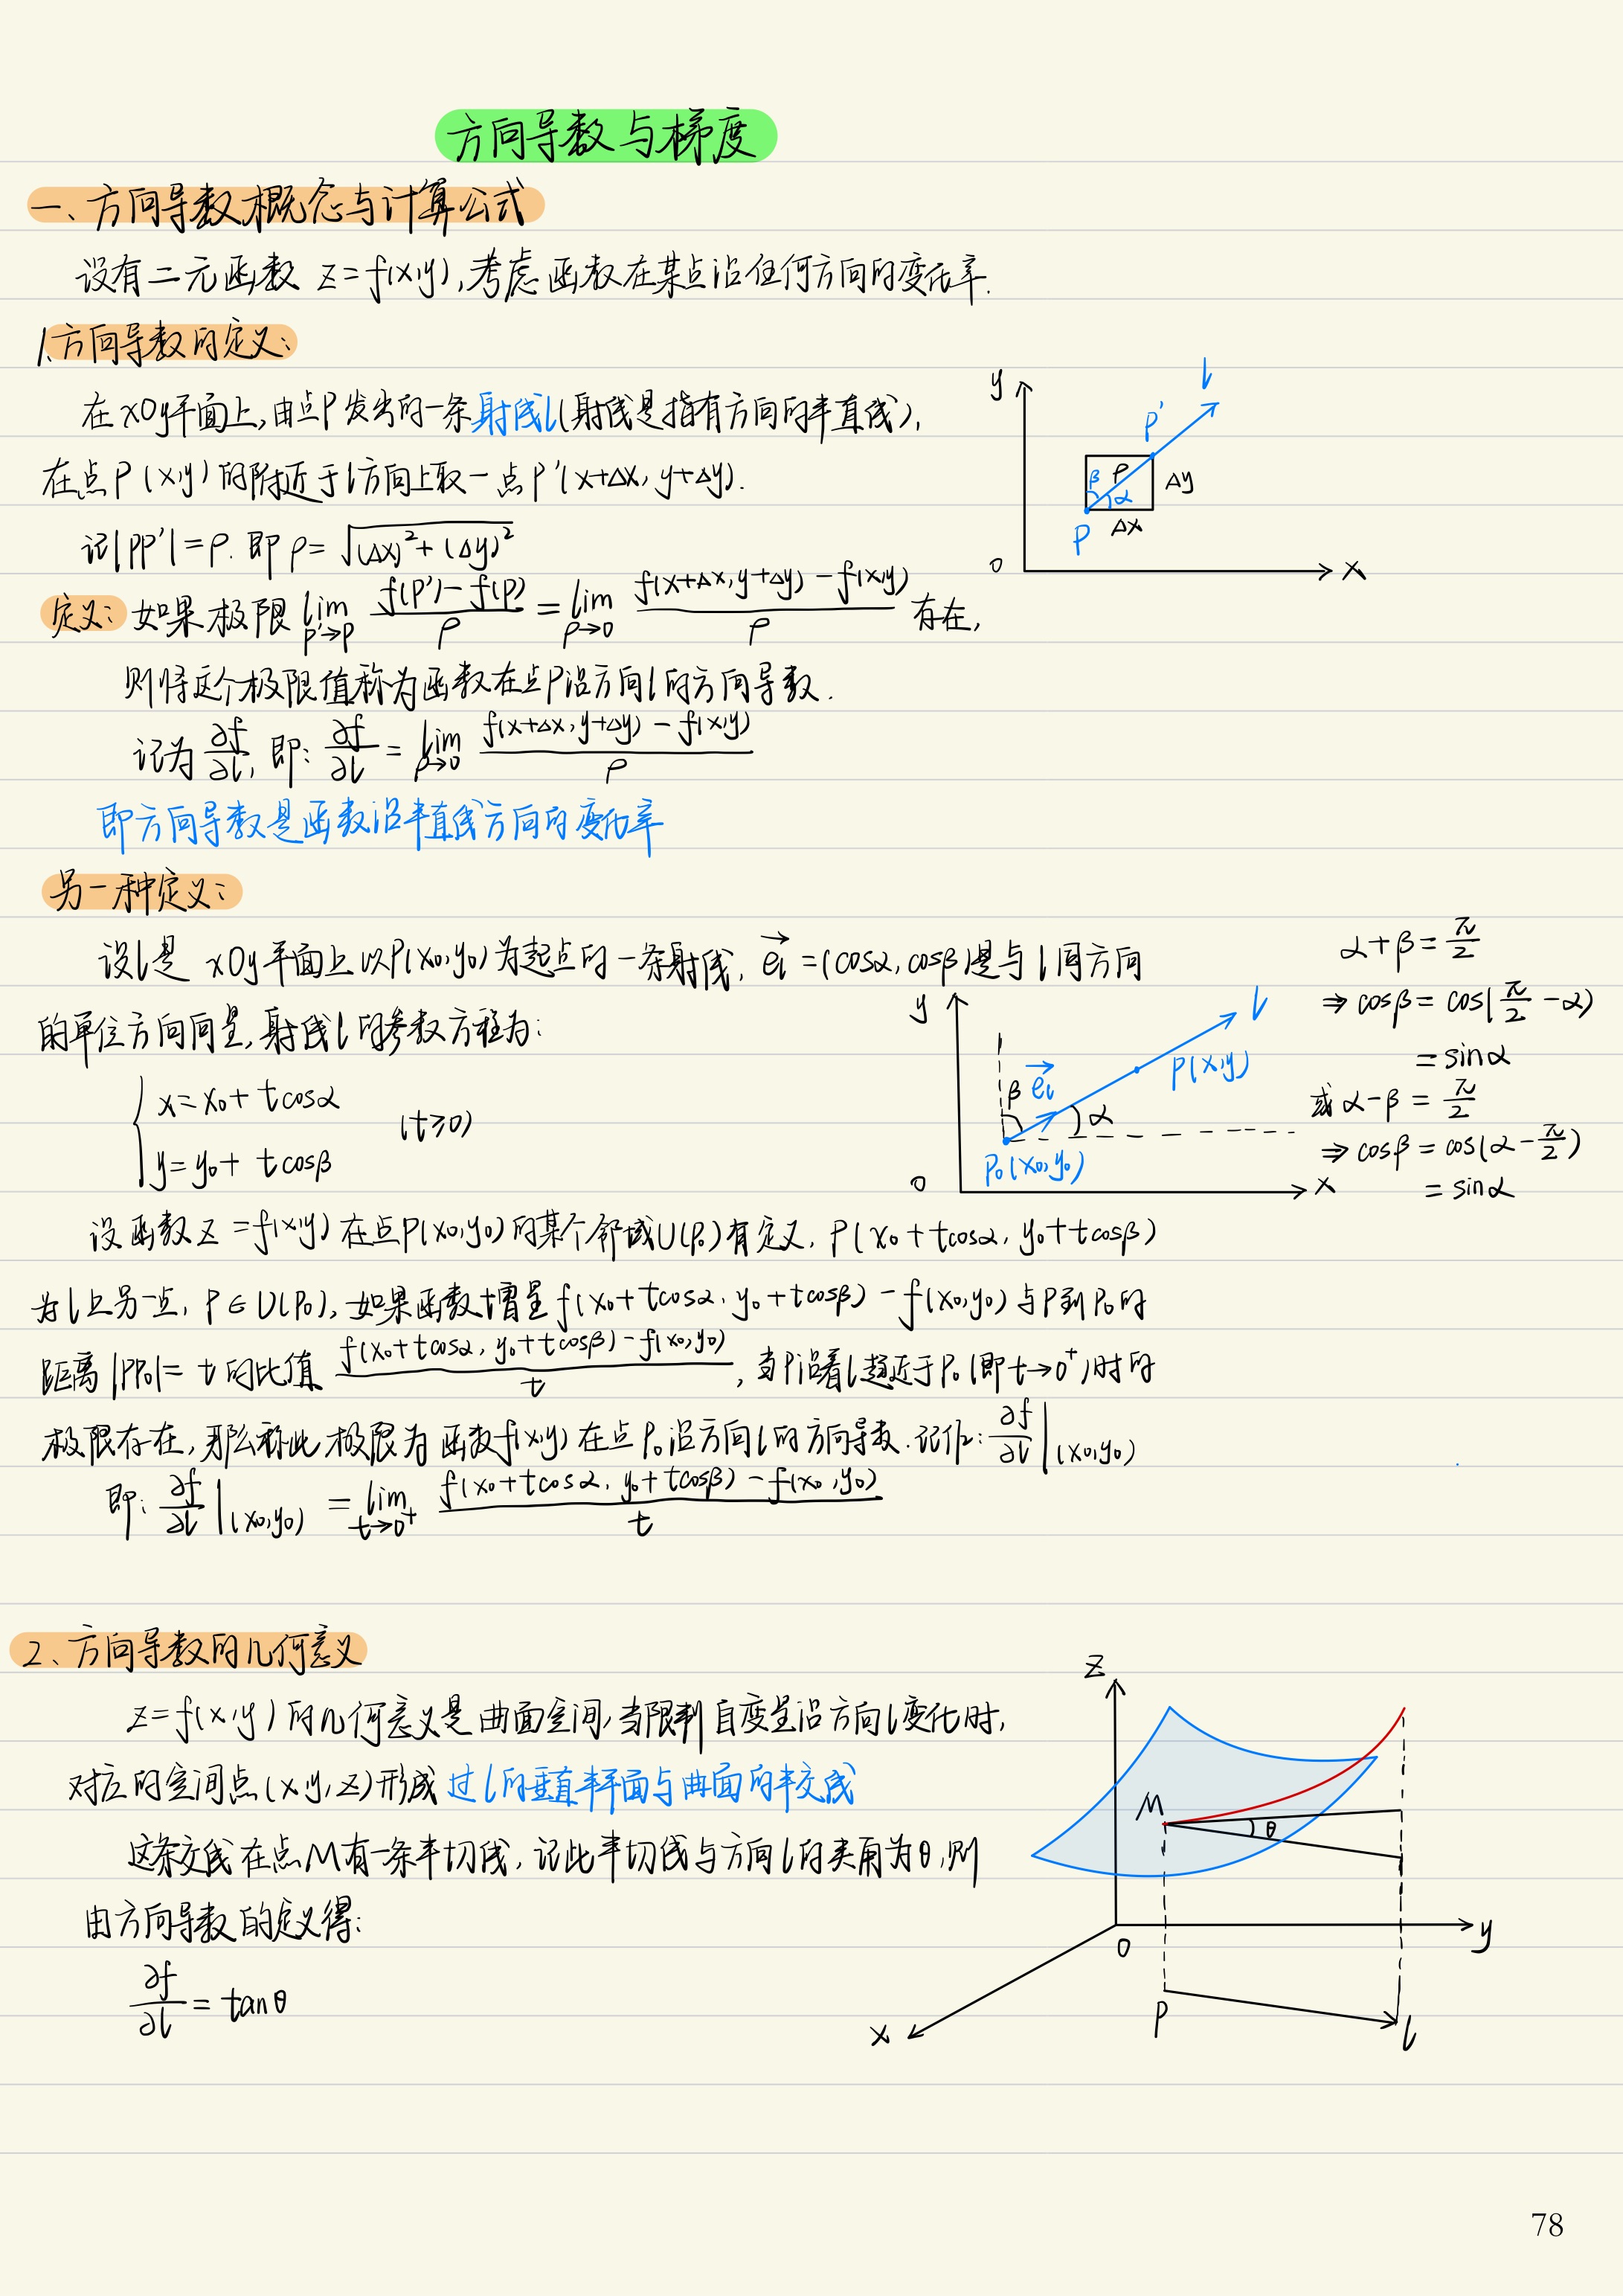 方向导数与梯度
一、方向导数概念与计算公式
设有二元函数 z=f(x,y),考虑函数在某点沿任何方向的变化率.
1.方向导数的定义:
在xOy平面上,由点P发出的一条射线l(射线是指有方向的半直线),
在点P(x,y)的附近于l方向上取一点P'(x+Δx, y+Δy).
记|PP'|=ρ. 即 ρ=√((Δx)²+(Δy)²)
y
l
P'
β ρ
α
Δy
P
Δx
0
x
定义: 如果极限 lim_{P'→P} (f(P')-f(P))/ρ = lim_{ρ→0} (f(x+Δx,y+Δy)-f(x,y))/ρ 存在,
则将这个极限值称为函数在点P沿方向l的方向导数.
记为 ∂f/∂l, 即: ∂f/∂l = lim_{ρ→0} (f(x+Δx,y+Δy)-f(x,y))/ρ
即方向导数是函数沿半直线方向的变化率
另一种定义:
设l是 xOy平面上以P(x₀,y₀)为起点的一条射线, →e_l=(cosα,cosβ)是与l同方向
的单位方向向量,射线l的参数方程为:
{ x=x₀+tcosα
(t≥0)
y=y₀+tcosβ
α+β=π/2
⇒cosβ=cos(π/2-α)
=sinα
或α-β=π/2
⇒cosβ=cos(α-π/2)
=sinα
y
l
P(x,y)
β
→e_l
α
P₀(x₀,y₀)
0
x
设函数z=f(x,y)在点P(x₀,y₀)的某个邻域U(P₀)有定义, P(x₀+tcosα, y₀+tcosβ)
为l上另一点, P∈U(P₀),如果函数增量f(x₀+tcosα, y₀+tcosβ)-f(x₀,y₀)与P到P₀的
距离|PP₀|=t的比值 (f(x₀+tcosα, y₀+tcosβ)-f(x₀,y₀))/t, 当P沿着l趋近于P₀(即t→0⁺)时的
极限存在,那么称此极限为函数f(x,y)在点P₀沿方向l的方向导数.记作: ∂f/∂l|(x₀,y₀)
即: ∂f/∂l|(x₀,y₀) = lim_{t→0⁺} (f(x₀+tcosα, y₀+tcosβ)-f(x₀,y₀))/t
2、方向导数的几何意义
z=f(x,y)的几何意义是曲面空间,当限制自变量沿方向l变化时,
对应的空间点(x,y,z)形成过l的垂直半平面与曲面的半交线
这条交线在点M有一条半切线,记此半切线与方向l的夹角为θ,则
由方向导数的定义得:
∂f/∂l=tanθ
z
M
θ
0
y
P
x
l
78